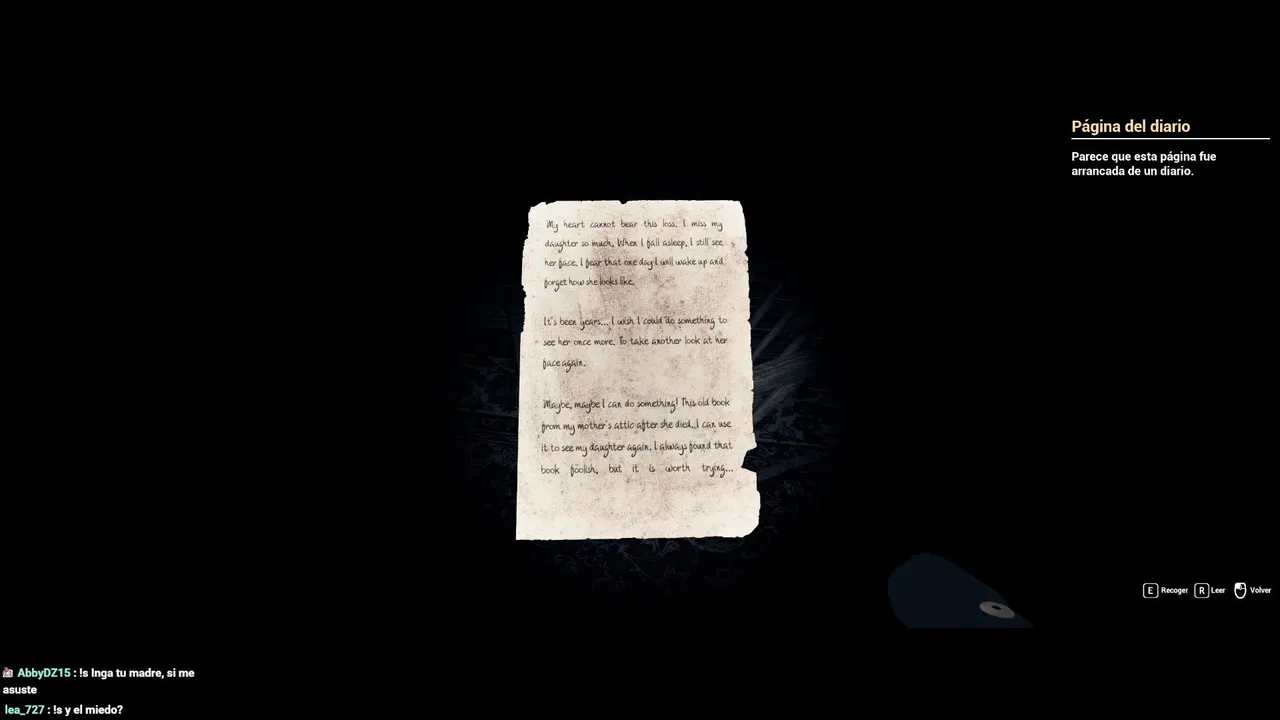 Página del diario
Parece que esta página fue
arrancada de un diario.
My heart cannot bear this loss. I miss my
daughter so much. When I fall asleep, I still see
her face. I fear that one day I will wake up and
forget how she looks like.
It's been years... I wish I could do something to
see her once more. To take another look at her
face again.
Maybe, maybe I can do something! This old book
from my mother's attic after she died...I can use
it to see my daughter again. I always found that
book foolish, but it is worth trying...
E Recoger R Leer Volver
AbbyDZ15 : !s Inga tu madre, si me
asuste
lea_727 : !s y el miedo?